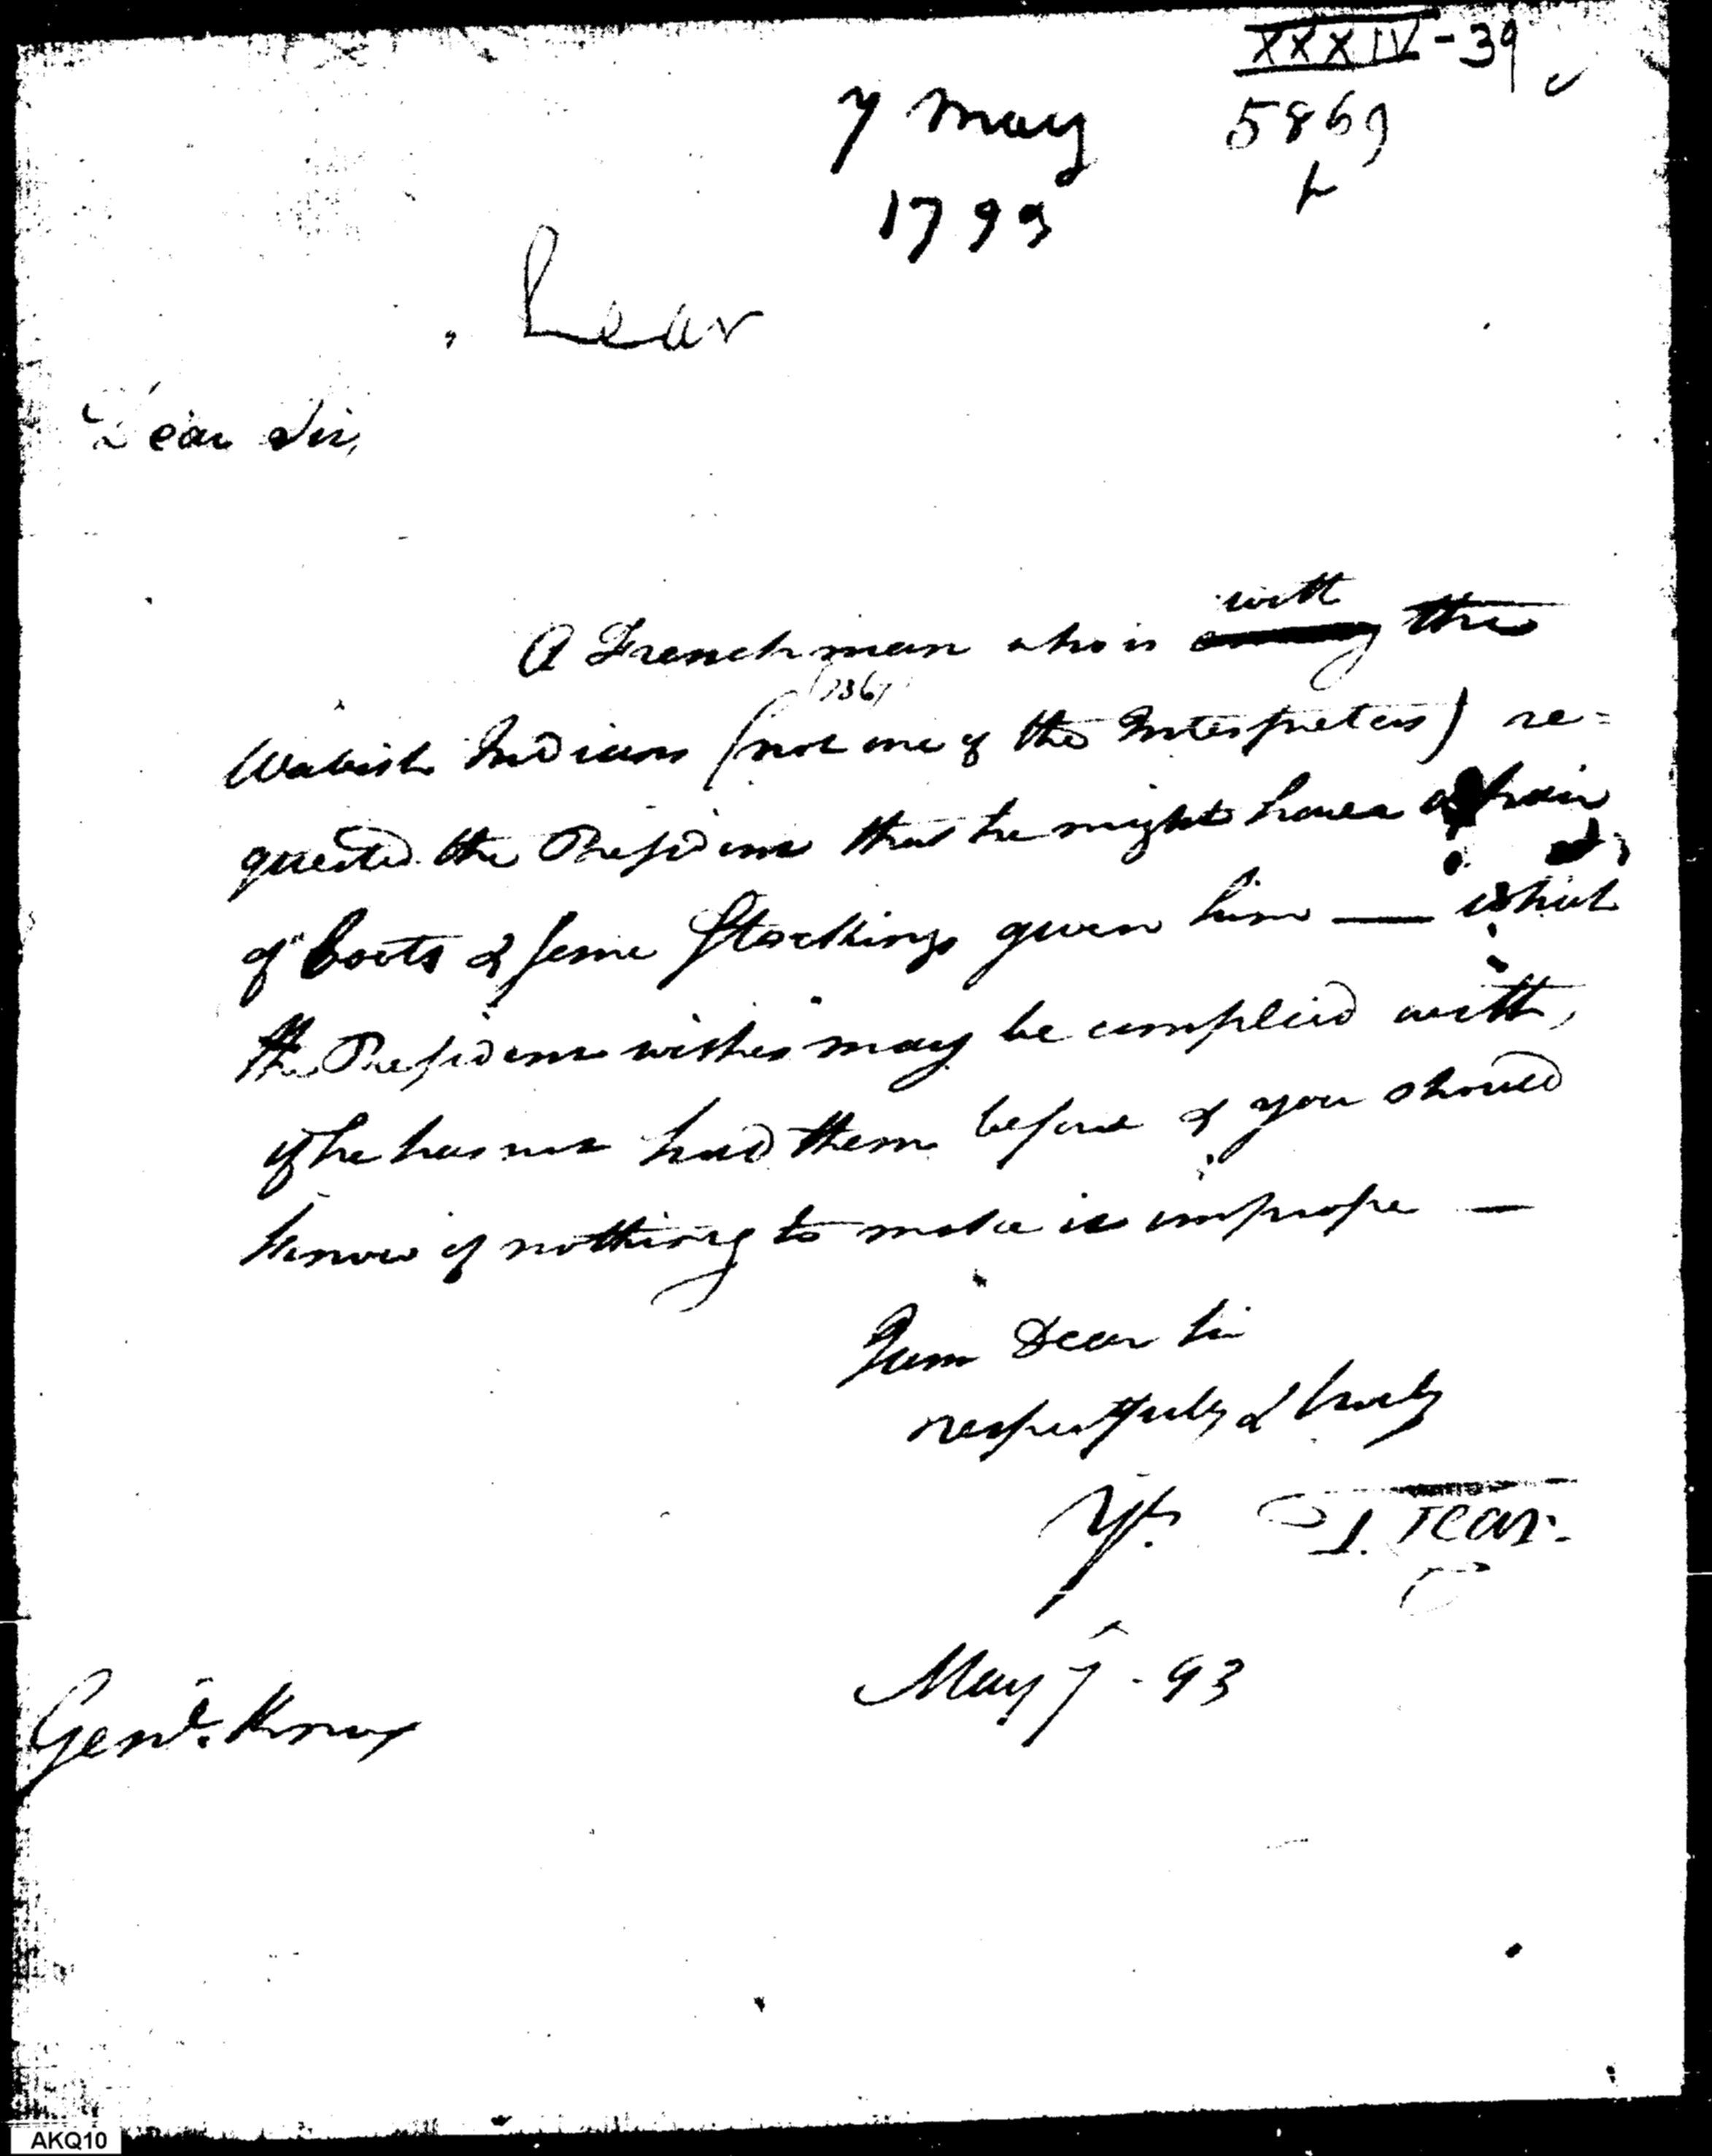 XXXIV-39
7 May 5869
1793
Lear
Dear Sir,
with
A Frenchman who is among the
Wabash Indians (not one of the Interpreters) re=
quested the President that he might have a pair
of boots & some Stockings given him — which
the President wishes may be complied with,
if he has not had them before & you should
know of nothing to make it improper —
I am Dear Sir
respectfully & truly
Yrs. T. Lear.
May 7 - 93
Genl. Knox
AKQ10